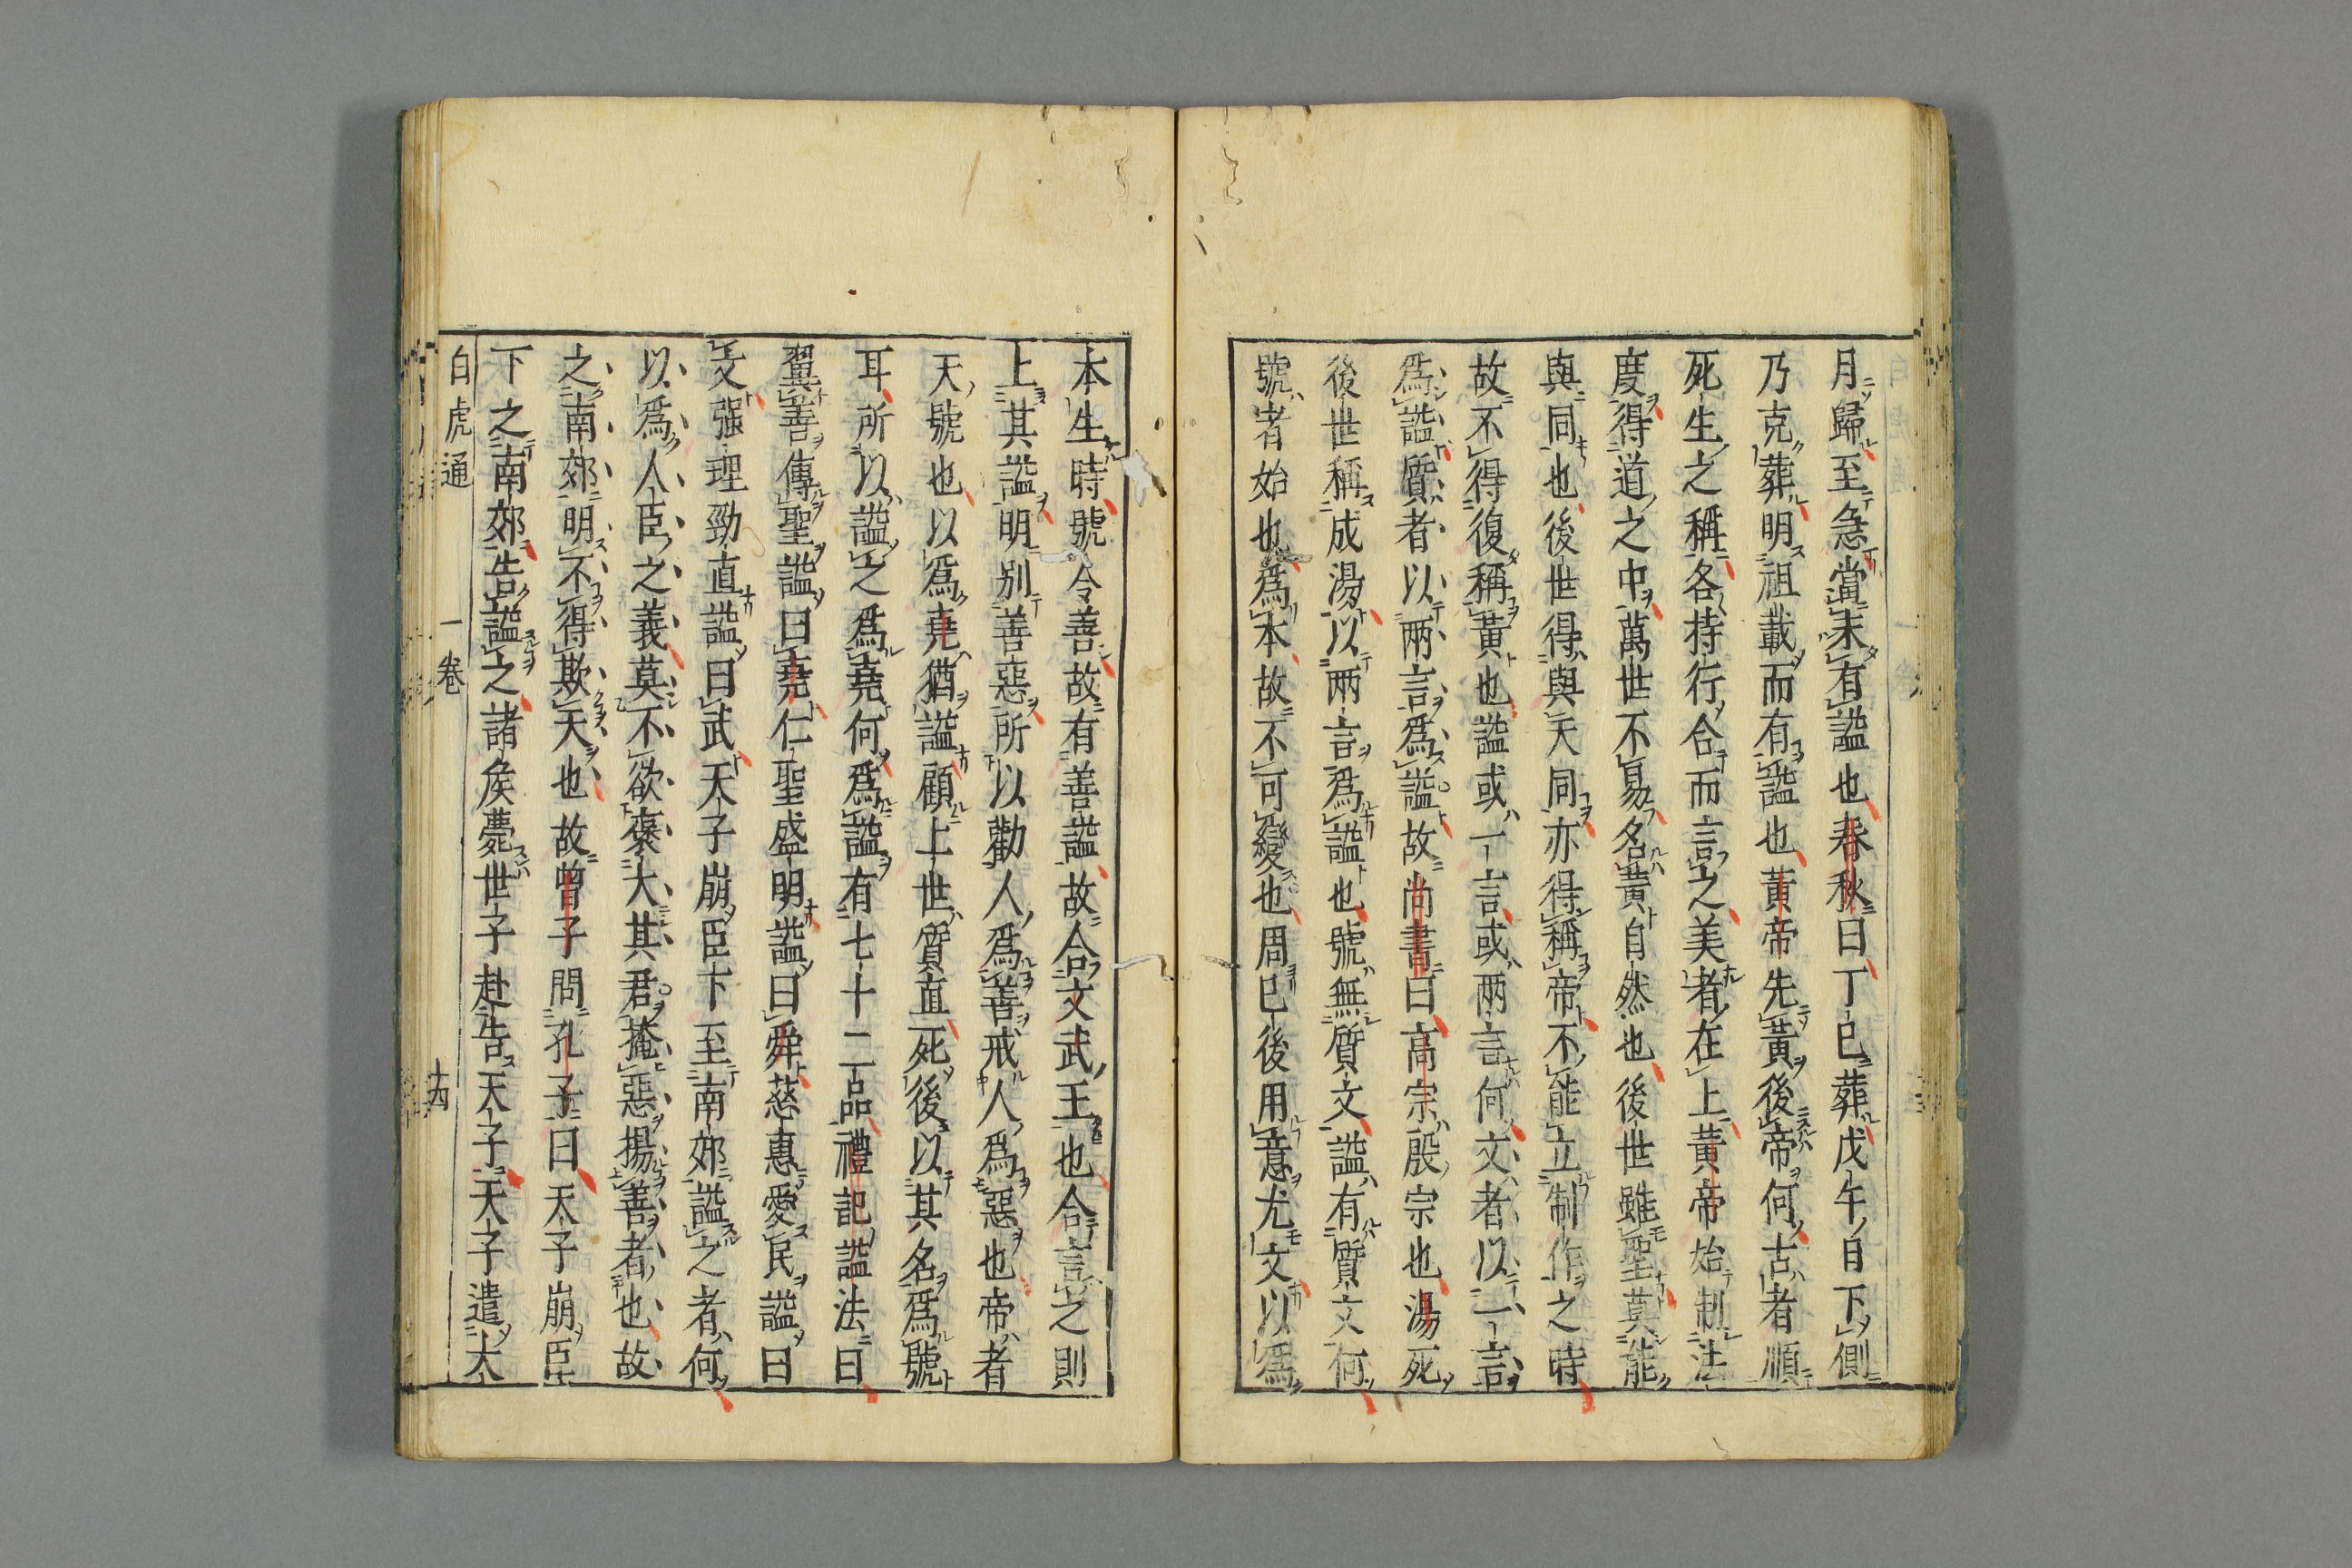 月歸至急當未有謚也春秋曰丁巳葬戊午日下側
乃克葬明祖載而有謚也黃帝先黃後帝何古者順
死生之稱各持行合而言之美者在上黃帝始制法
度得道之中萬世不易名黃自然也後世雖聖莫能
與同也後世得與天同亦得稱帝不能立制作之時
故不得復稱黃也謚或一言或兩言何文者以一言
爲謚質者以兩言爲謚故尚書曰高宗殷宗也湯死
後世稱成湯以兩言爲謚也號無質文謚有質文何
號者始也爲本故不可變也周已後用意尤文以爲
本生時號令善故有善謚故合文武王也合言之則
上其謚明别善惡所以勸人爲善戒人爲惡也帝者
天號也以爲堯猶謚顧上世質直死後以其名爲號
耳所以謚之爲堯何爲謚有七十二品禮記謚法曰
翼善傳聖謚曰堯仁聖盛明謚曰舜慈惠愛民謚曰
文强理勁直謚曰武天子崩臣下至南郊謚之者何
以爲人臣之義莫不欲襃大其君掩惡揚善者也故
之南郊明不得欺天也故曾子問孔子曰天子崩臣
下之南郊告謚之諸侯薨世子赴告天子天子遣大
白虎通 一卷 十四